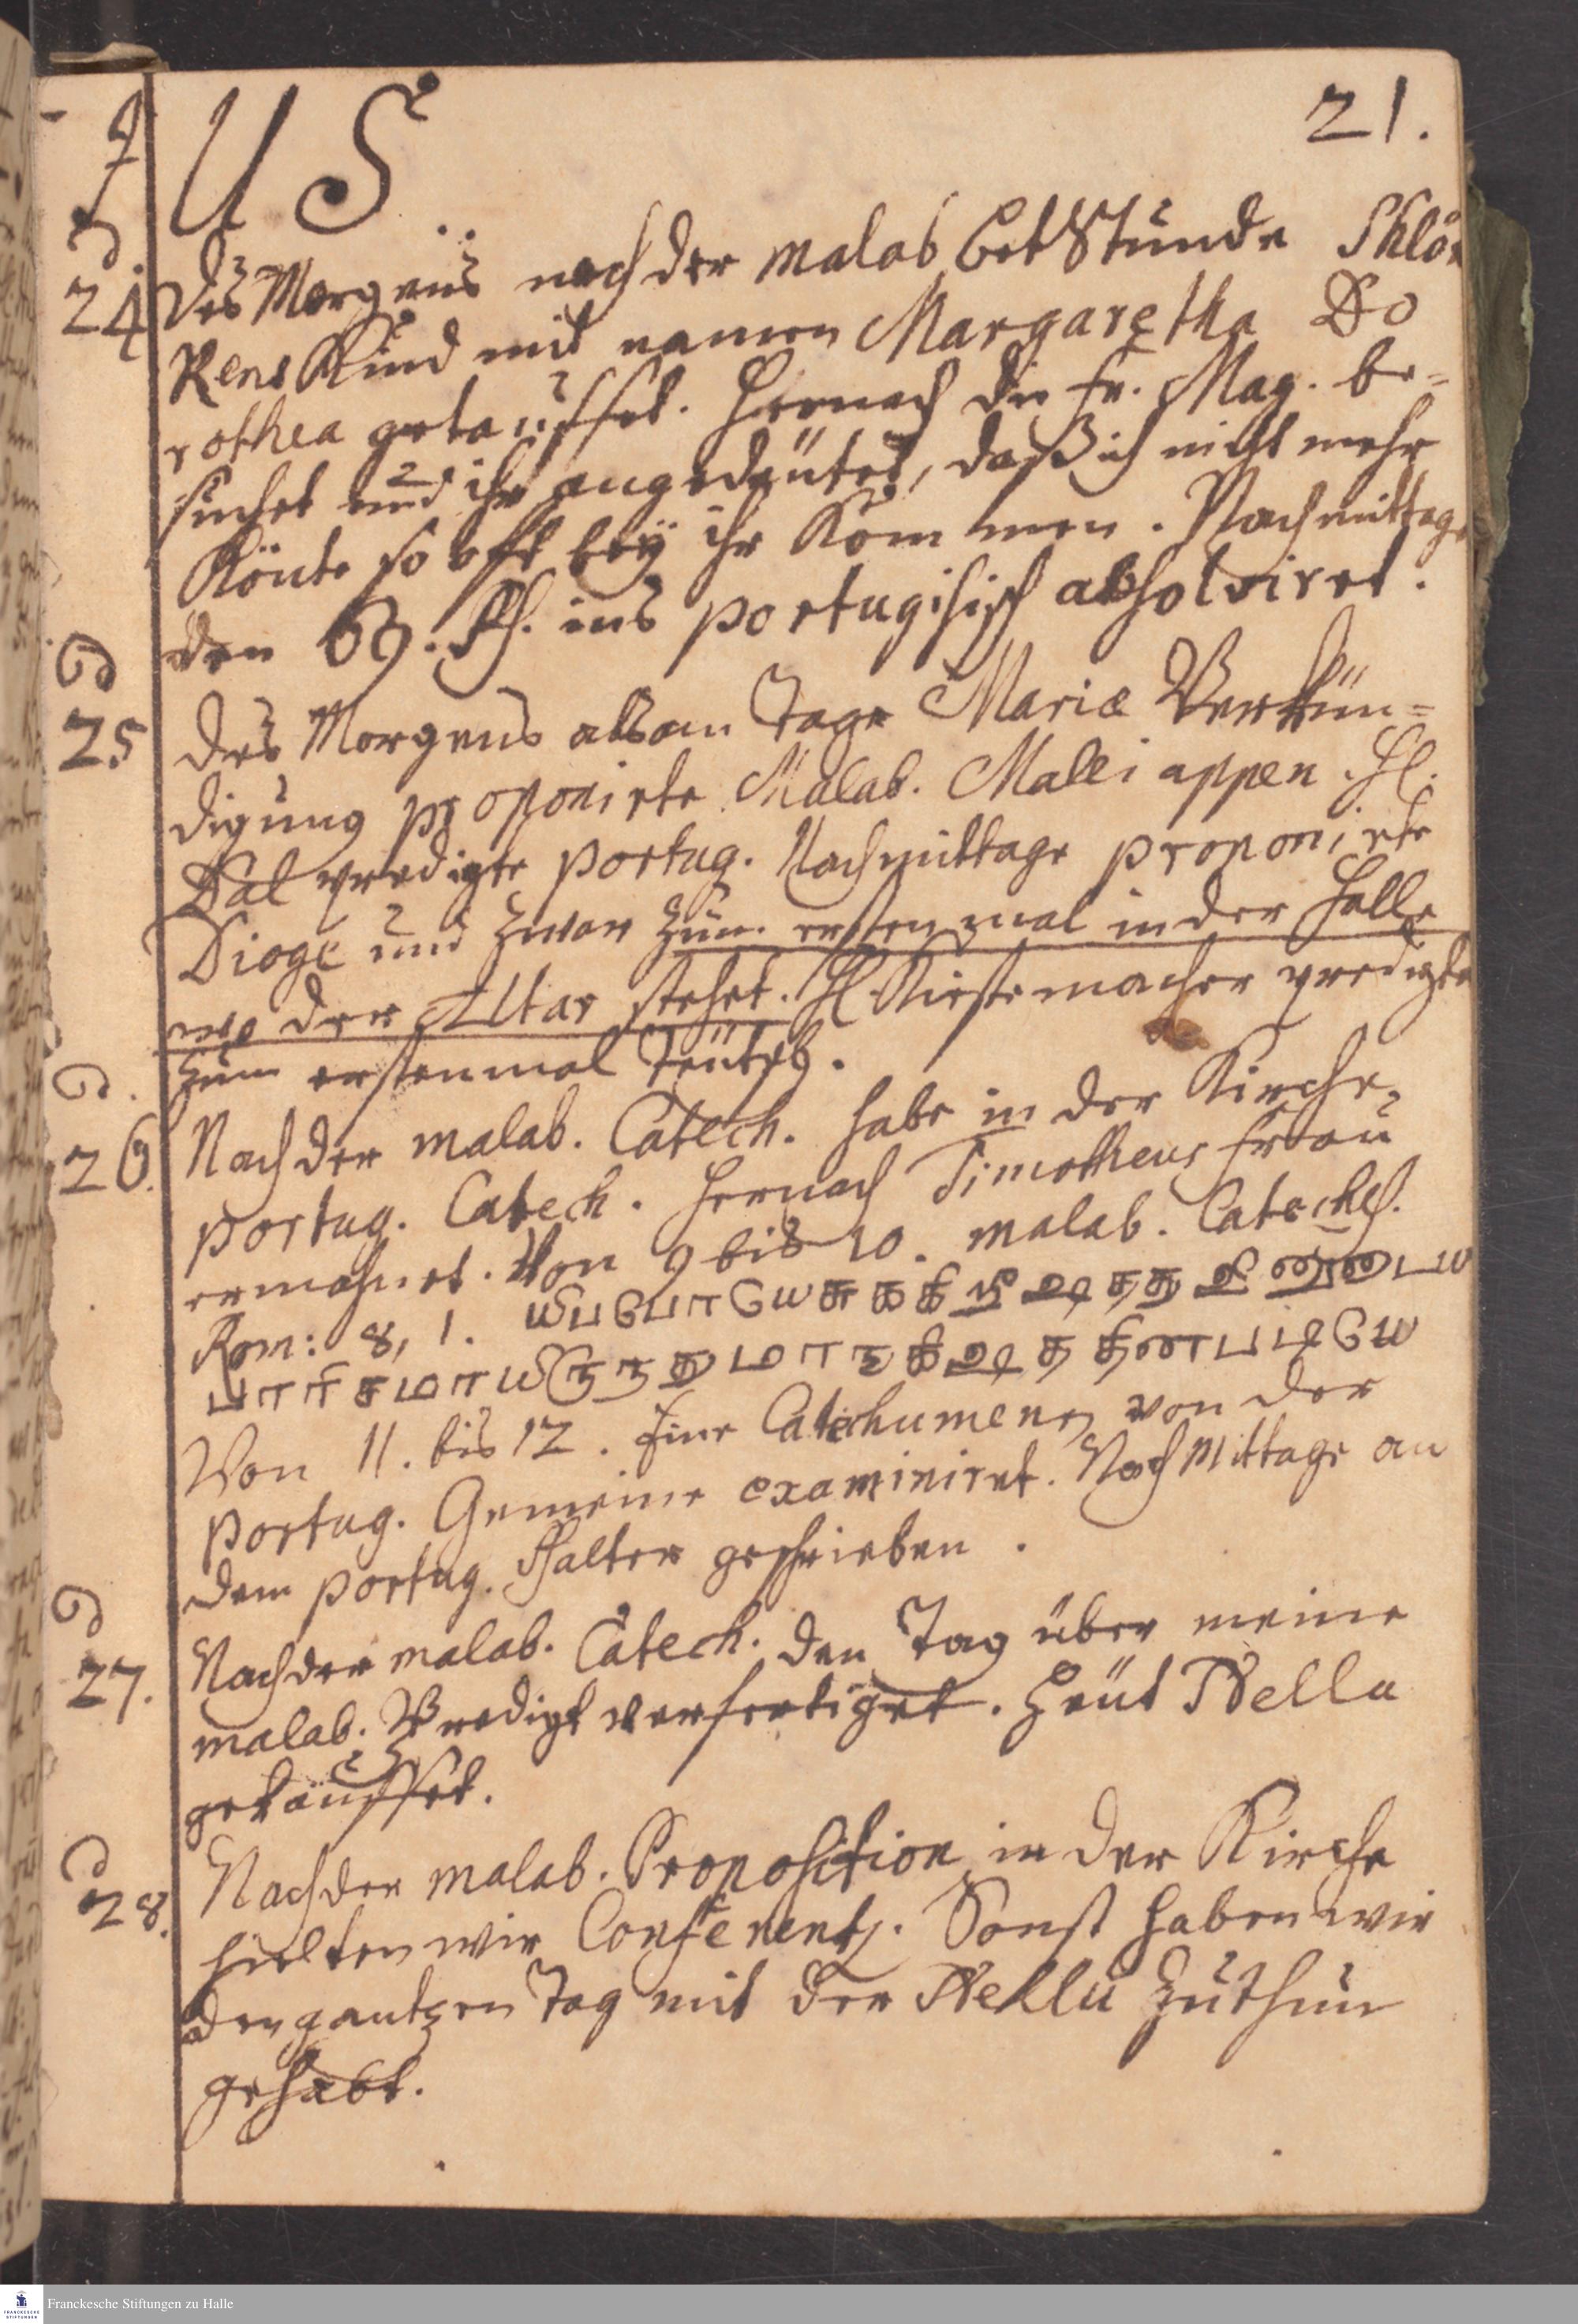 US 21.
d 24 Des Morgens nach der malab betstunde Shlö
Rens Kind mit namen Margaretha Do
rothea getauffet. Hernach die Fr. Mag. be=
suchet und ihr angedeutet, daß ich nicht mehr
könte so oft beÿ ihr kommen. Nachmittage
den 69. Ps. ins portugisisch absolviret.
d 25 Des Morgens als am Tage Mariæ Verkün=
digung proponirte Malab. Malleiappen. H.
Dal predigte portug. Nachmittage proponirte
Diogo und zwar zum erstenmal in der Halle
wo der Altar stehet. H Kistemacher predigte
zum erstenmal Teütsch.
d. 26. Nach der malab. Catech. habe in der Kirche
portug. Catech. hernach Timotheus Frau
ermahnet. Von 9 bis 10. malab. Cateches.
Rom: 8, 1.
Von 11. bis 12. Eine Catechumene von der
portug. Gemeine examiniret. Nachmittage an
dem portug. Psalter geschrieben.
d 27. Nach der malab. Catech. den Tag über meine
malab. Predigt verfertiget. Heüt Nella
getäuffet.
d 28. Nach der malab. Proposition in der Kirche
hielten wir Conferentz. Sonst haben wir
den gantzen Tag mit der Nella zuthun
gehabt.
Franckesche Stiftungen zu Halle